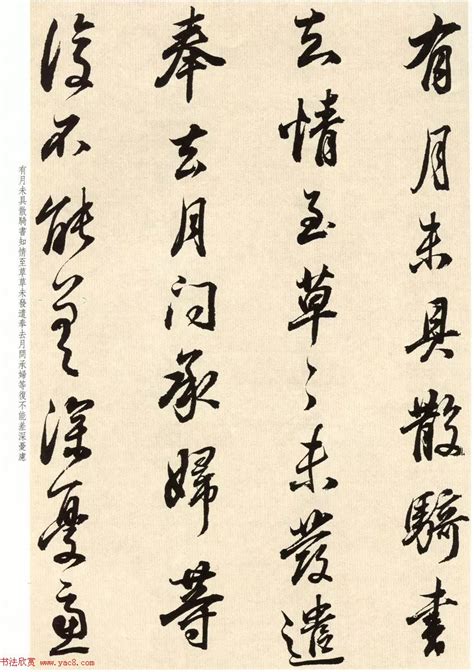 有月未具散騎書
知情至草〻未發遣
奉去月問承婦等
復不能差深憂慮
有月未具散騎書知情至草草未發遣奉去月問承婦等復不能差深憂慮
书法欣赏 www.yac8.com